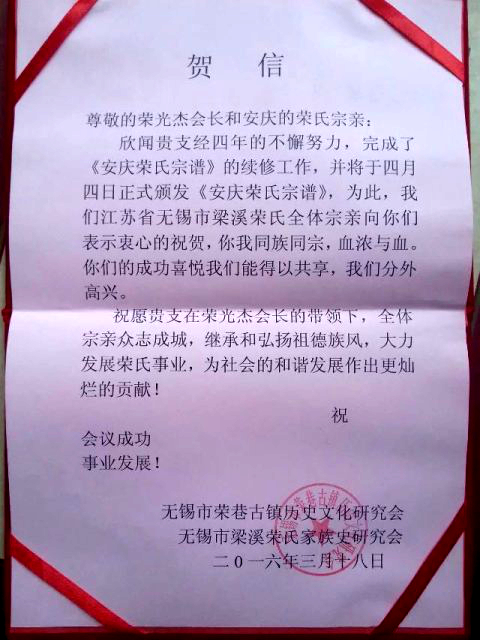 贺 信
尊敬的荣光杰会长和安庆的荣氏宗亲：
欣闻贵支经四年的不懈努力，完成了
《安庆荣氏宗谱》的续修工作，并将于四月
四日正式颁发《安庆荣氏宗谱》，为此，我
们江苏省无锡市梁溪荣氏全体宗亲向你们
表示衷心的祝贺，你我同族同宗，血浓与血。
你们的成功喜悦我们能得以共享，我们分外
高兴。
祝愿贵支在荣光杰会长的带领下，全体
宗亲众志成城，继承和弘扬祖德族风，大力
发展荣氏事业，为社会的和谐发展作出更灿
烂的贡献！
祝
会议成功
事业发展！
无锡市荣巷古镇历史文化研究会
无锡市梁溪荣氏家族史研究会
二0一六年三月十八日